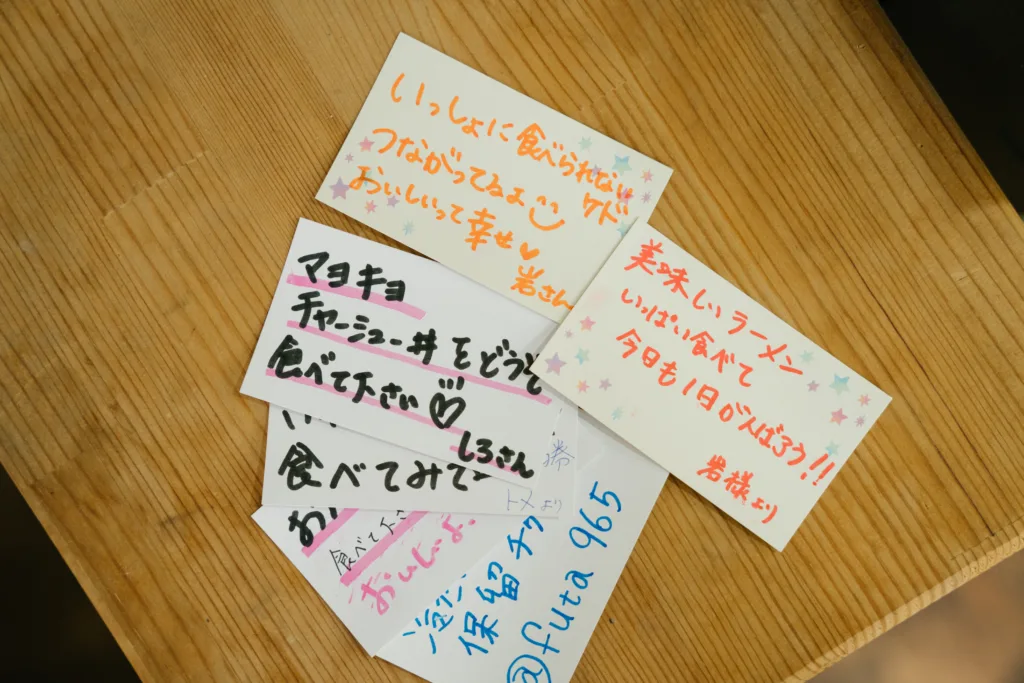 いっしょに食べられないケド
つながってるよ
おいしいって幸せ
岩さん
美味しいラーメン
いっぱい食べて
今日も1日がんばろう!!
岩様より
マヨキョ
チャーシュー丼をどうぞ
食べて下さい
しろさん
食べてみて
トメより
食べて下さ
おいしいよ
保留チケ
@futa965